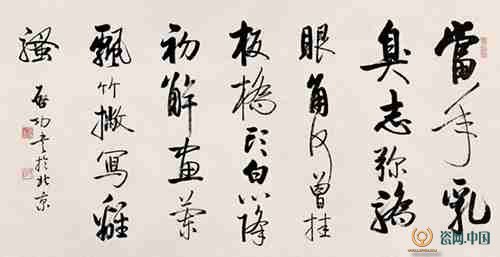 當年乳
臭志弥驕
眼角何曾挂
板橋頭白心降
初解畫蘭
飄竹撇寫離
騷
啟功書於北京
瓷网.中国